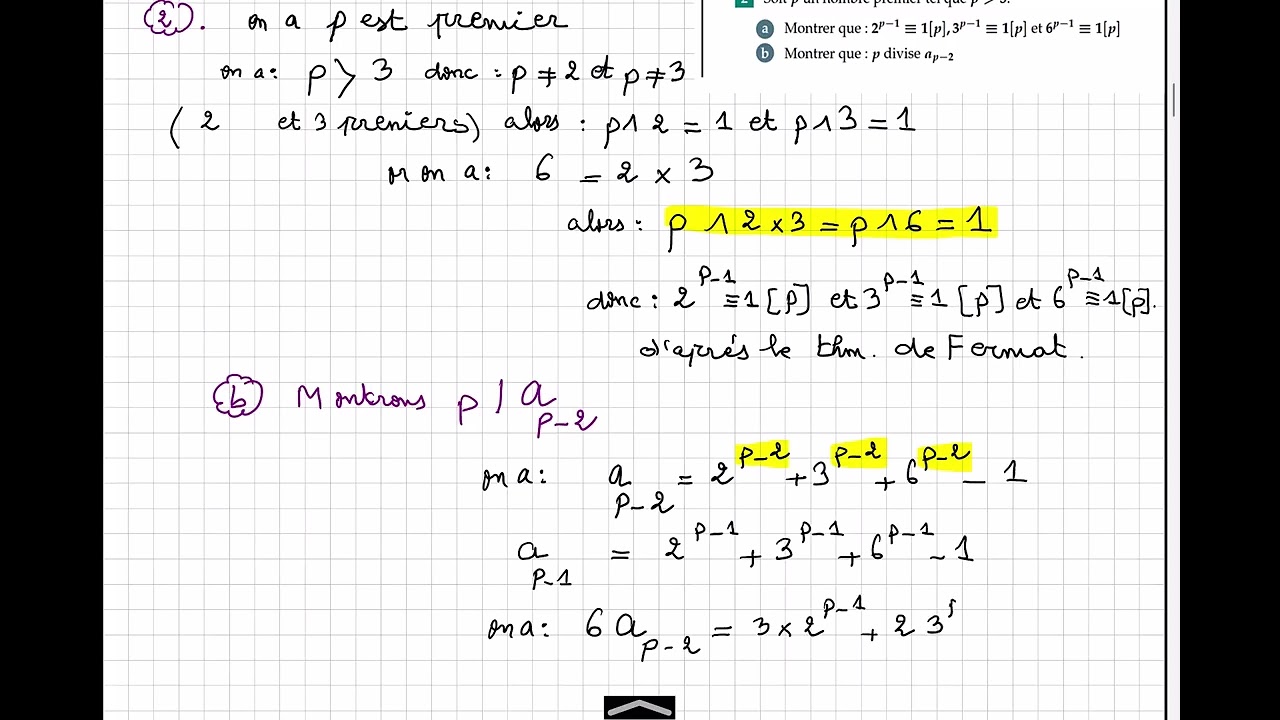 2. on a p est premier
2 Soit p un nombre premier tel que p > 3.
a Montrer que : 2^{p−1} ≡ 1[p], 3^{p−1} ≡ 1[p] et 6^{p−1} ≡ 1[p]
b Montrer que : p divise a_{p−2}
on a: p > 3 donc : p ≠ 2 et p ≠ 3
(2 et 3 premiers) alors : p∧2 = 1 et p∧3 = 1
or on a: 6 = 2 × 3
alors: p ∧ 2×3 = p∧6 = 1
donc: 2^{p-1} ≡ 1 [p] et 3^{p-1} ≡ 1 [p] et 6^{p-1} ≡ 1[p].
d'aprés le thm. de Fermat.
b Montrons p | a_{p-2}
on a: a_{p-2} = 2^{p-2} + 3^{p-2} + 6^{p-2} - 1
a_{p-1} = 2^{p-1} + 3^{p-1} + 6^{p-1} - 1
on a: 6 a_{p-2} = 3 × 2^{p-1} + 2 3